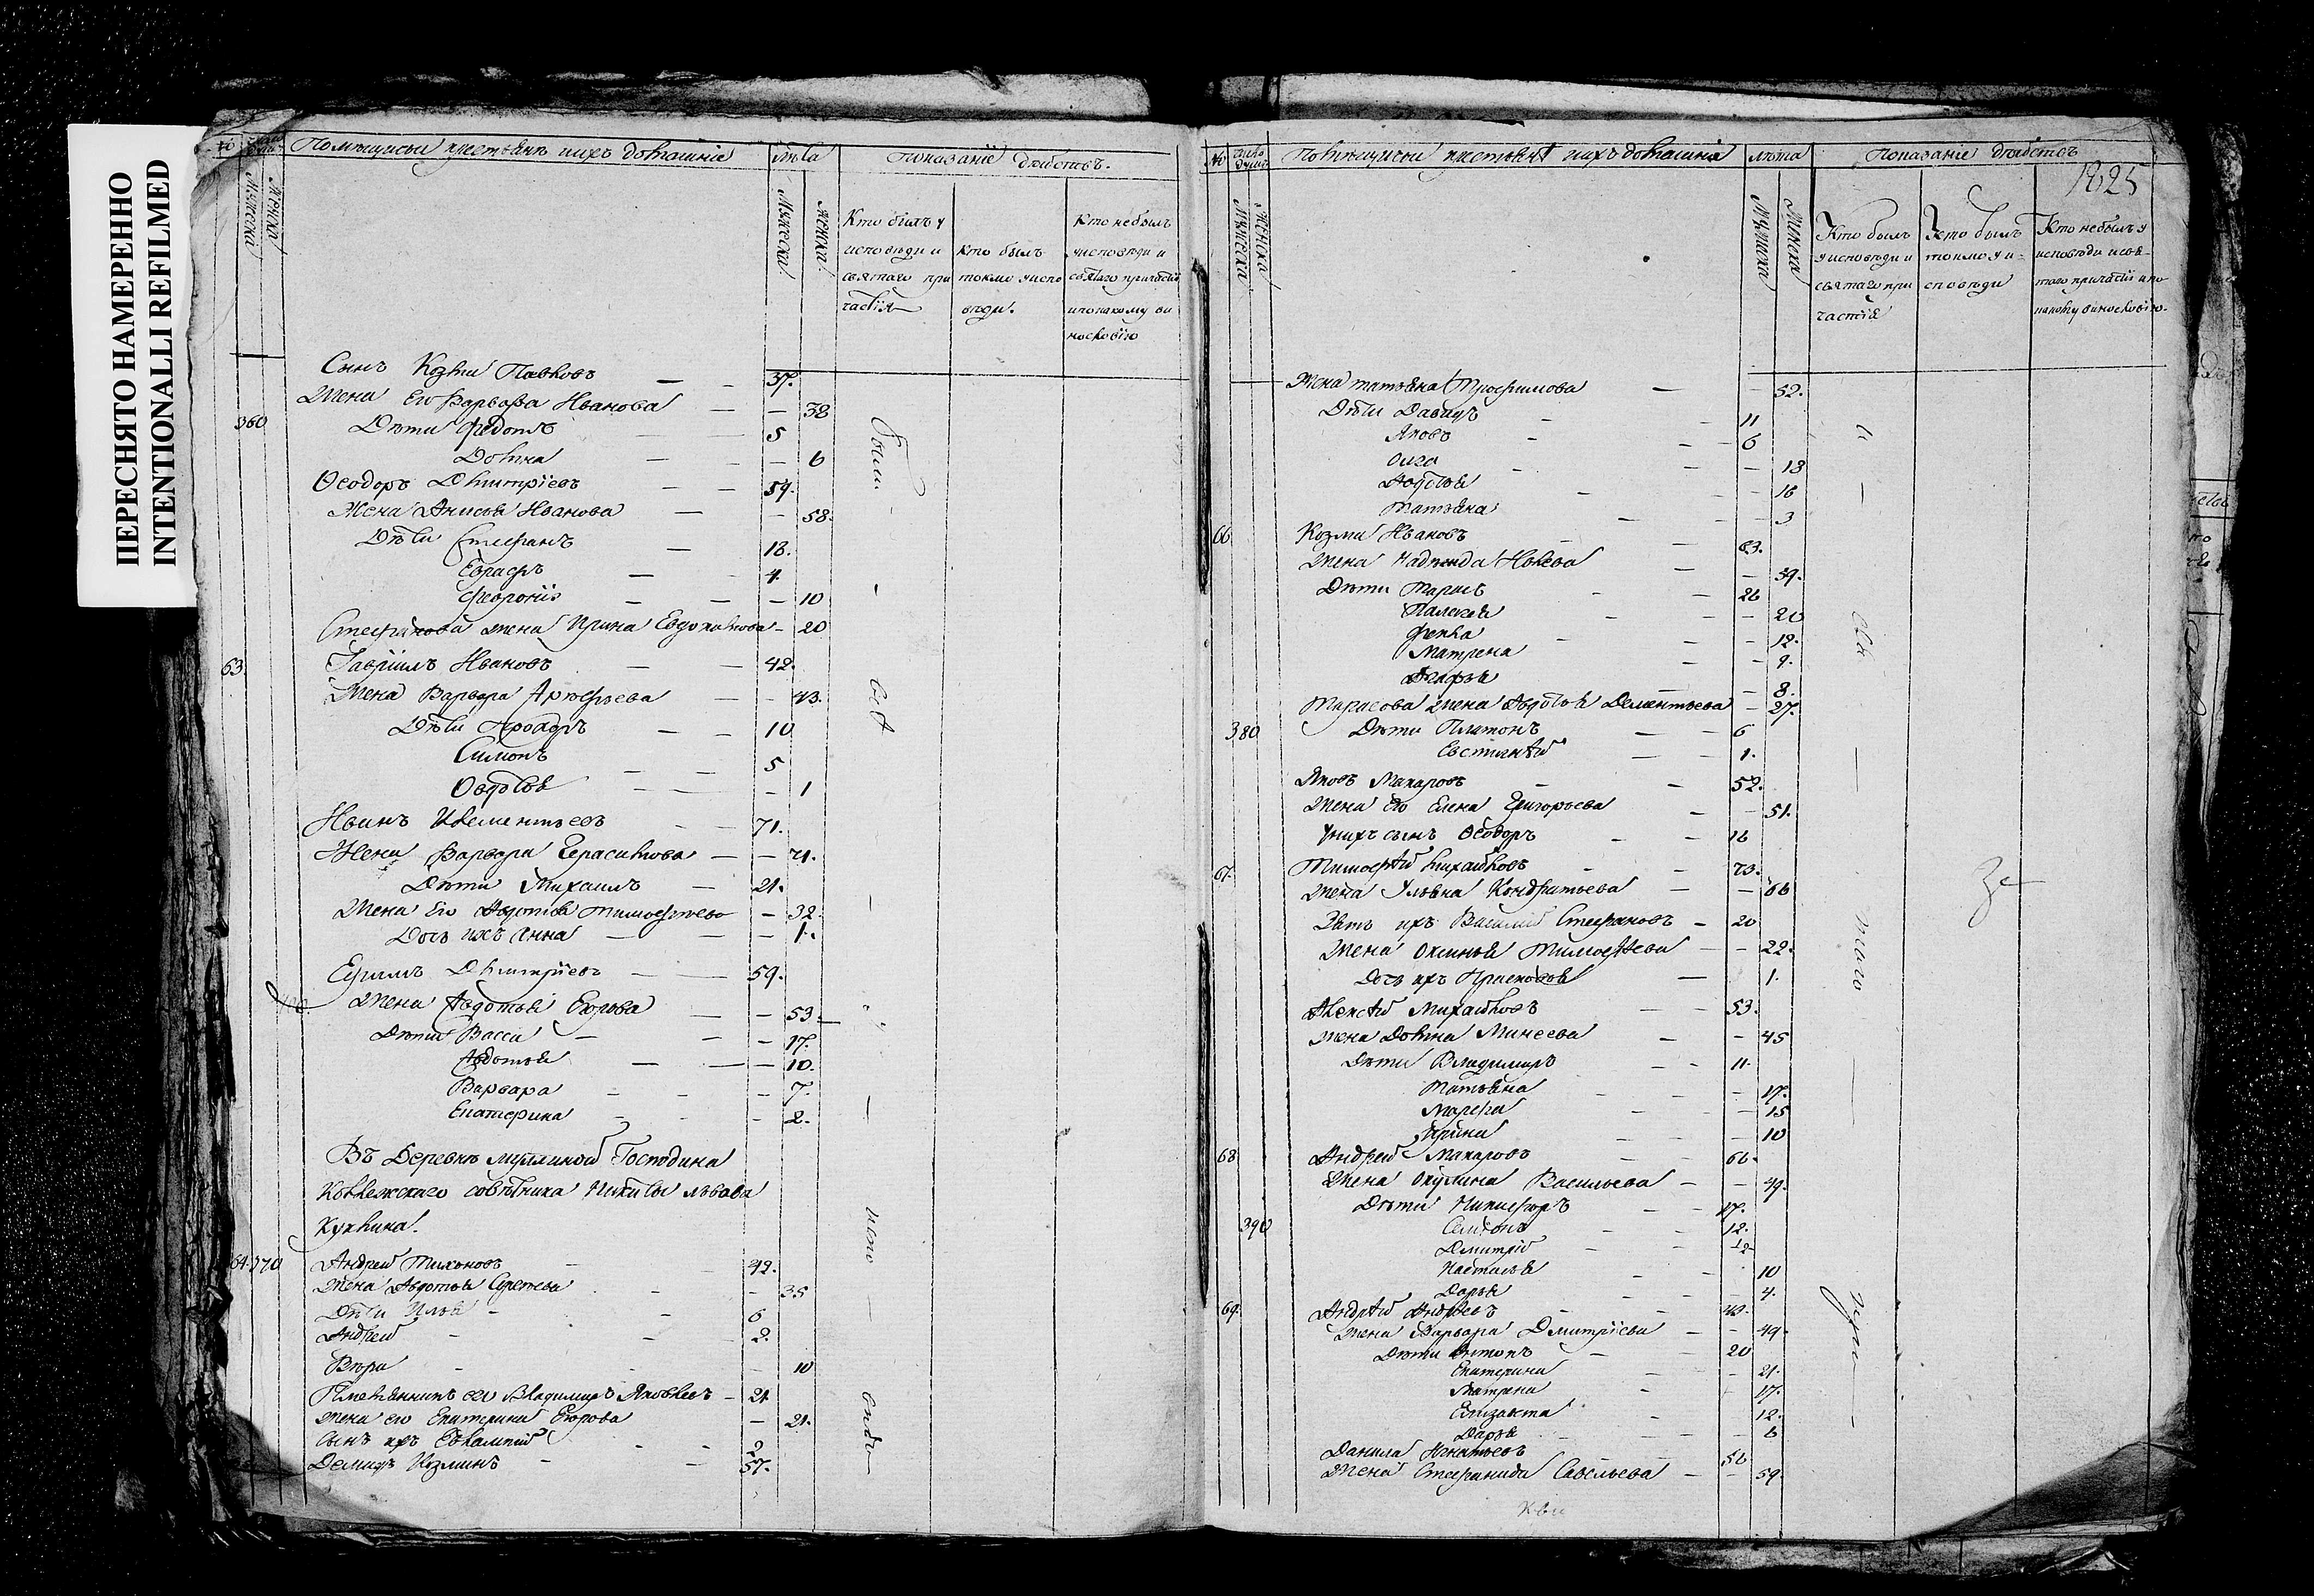 ПЕРЕСНЯТО НАМЕРЕННО
INTENTIONALLI REFILMED
№
Помѣщичьи крестьяне и ихъ домашнiе
лѣта
Показанiе дѣйствъ.
Мужеска
Женска
Мужеска
Женска
Кто былъ у исповѣди и святаго причастiя
Кто былъ токмо у исповѣди.
Кто не былъ у исповѣди и святаго причастiя и по какому виносковiю
Сынъ Козма Павловъ — 37.
Жена Его Варвара Иванова — 38
360 Дѣти Федотъ 5
Домна — 6
Ѳеодоръ Дмитрiевъ — 59.
Жена Анисья Иванова — 58.
Дѣти Стефанъ — 18.
Евграфъ — 4.
Феронiя — 10
Стефанова жена Ирина Евдокимова — 20
63. Гаврiилъ Ивановъ — 42.
Жена Варвара Арефьева — 43.
Дѣти 10
Симонъ — 5
Овдотья — 1
Иванъ Клементьевъ — 71.
Жена Варвара Герасимова — 71.
Дѣти Михаилъ — 21.
Жена Его Авдотья Тимофеева — 32.
Дочь ихъ Анна — 1.
Ефимъ Дмитрiевъ — 59.
Жена Авдотья Егорова — 53.
Дѣти Васса — 17.
Авдотья — 10.
Варвара — 7.
Екатерина — 2.
Въ Деревнѣ Господина
Коллежскаго совѣтника Никиты Львова
64. 370 Андрей Тихоновъ — 42.
Жена Авдотья Сергѣева — 35
Дѣти Илья — 6
Андрей — 2.
Вѣра — 10
Племянникъ его Владимиръ Яковлевъ — 21
Жена его Екатерина Егорова — 21.
Сынъ ихъ Евлампiй — 2
Демидъ Козминъ — 57.
были
всѣ
№
Помѣщичьи крестьяне и ихъ домашнiя
лѣта
Показанiе дѣйствъ
1825
Мужеска
Женска
Мужеска
Женска
Кто былъ у исповѣди и святаго причастiя
Кто былъ токмо у исповѣди
Кто не былъ у исповѣди и святаго причастiя и по какому виносковiю.
Жена Татьяна Трофимова — 52.
Дѣти Давидъ — 11
Яковъ — 6
Олга — 18
Авдотья — 16
Татьяна — 3
66 Козма Ивановъ — 63.
Жена Надежда — 59.
Дѣти Тарасъ — 26
Палагея — 20
Фекла — 12.
Матрена — 9.
Агафья — 8.
Тарасова жена Авдотья Дементьева — 27.
380 Дѣти Платонъ — 6
1.
Яковъ Макаровъ — 52.
Жена его Елена Григорьева — 51.
У нихъ сынъ Ѳеодоръ — 16
67. Тимофей Михайловъ — 73.
Жена Ульяна Кондратьева — 66
Зять ихъ Василiй Стефановъ — 20
Жена Оксинья Тимофеева — 22.
Дочь ихъ Прасковья — 1.
Алексѣй Михайловъ — 53.
Жена Домна Минеева — 45
Дѣти Владимиръ — 11.
Татьяна — 17.
Марфа — 15
Ирина — 10
68 Андрей Макаровъ — 66.
Жена Окулина Васильева — 49.
Дѣти Никифоръ — 17.
390 Семiонъ — 12.
Дмитрiй — 12
Настасья — 10
Дарья — 4.
69. Андрѣй Андреевъ — 48.
Жена Варвара Дмитрiева — 49.
Дѣти Антонъ — 20
Екатерина — 21.
Матрена — 17.
Елизавета — 12.
Дарья — 6
Данила Игнатьевъ — 56
Жена Стефанида Савельева — 59.